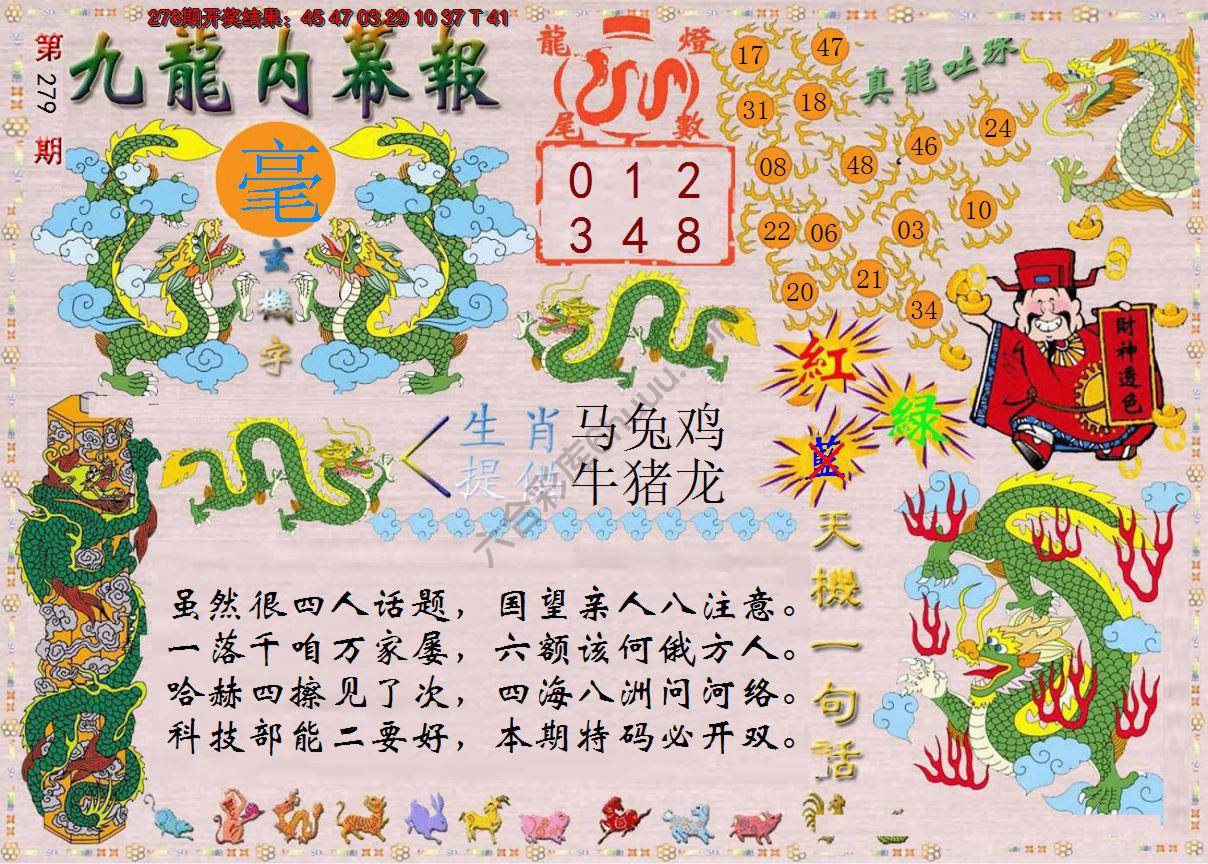 278期开奖结果：45 47 03 29 10 37 T 41
第279期
九龍内幕報
毫
玄機字
龍燈
尾數
0 1 2
3 4 8
真龍吐珠
17 47
31 18
08 48 46 24
22 06 03 10
20 21 34
紅
綠
藍
財神透色
生肖 马兔鸡
提供 牛猪龙
虽然很四人话题，国望亲人八注意。
一落千咱万家屡，六额该何俄方人。
哈赫四擦见了次，四海八洲问河络。
科技部能二要好，本期特码必开双。
天機一句話